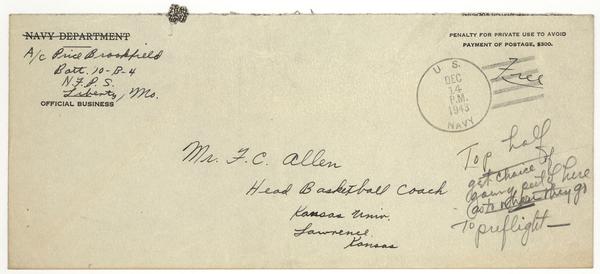 NAVY DEPARTMENT
A/c Price Brookfield
Batt. 10-B-4
N.F.P.S.
Liberty, Mo.
OFFICIAL BUSINESS
PENALTY FOR PRIVATE USE TO AVOID
PAYMENT OF POSTAGE, $300.
Free
U. S.
DEC
14
P.M.
1943
NAVY
Mr. F. C. Allen
Head Basketball Coach
Kansas Univ.
Lawrence
Kansas
Top half
get choice of
here
they go
To preflight—